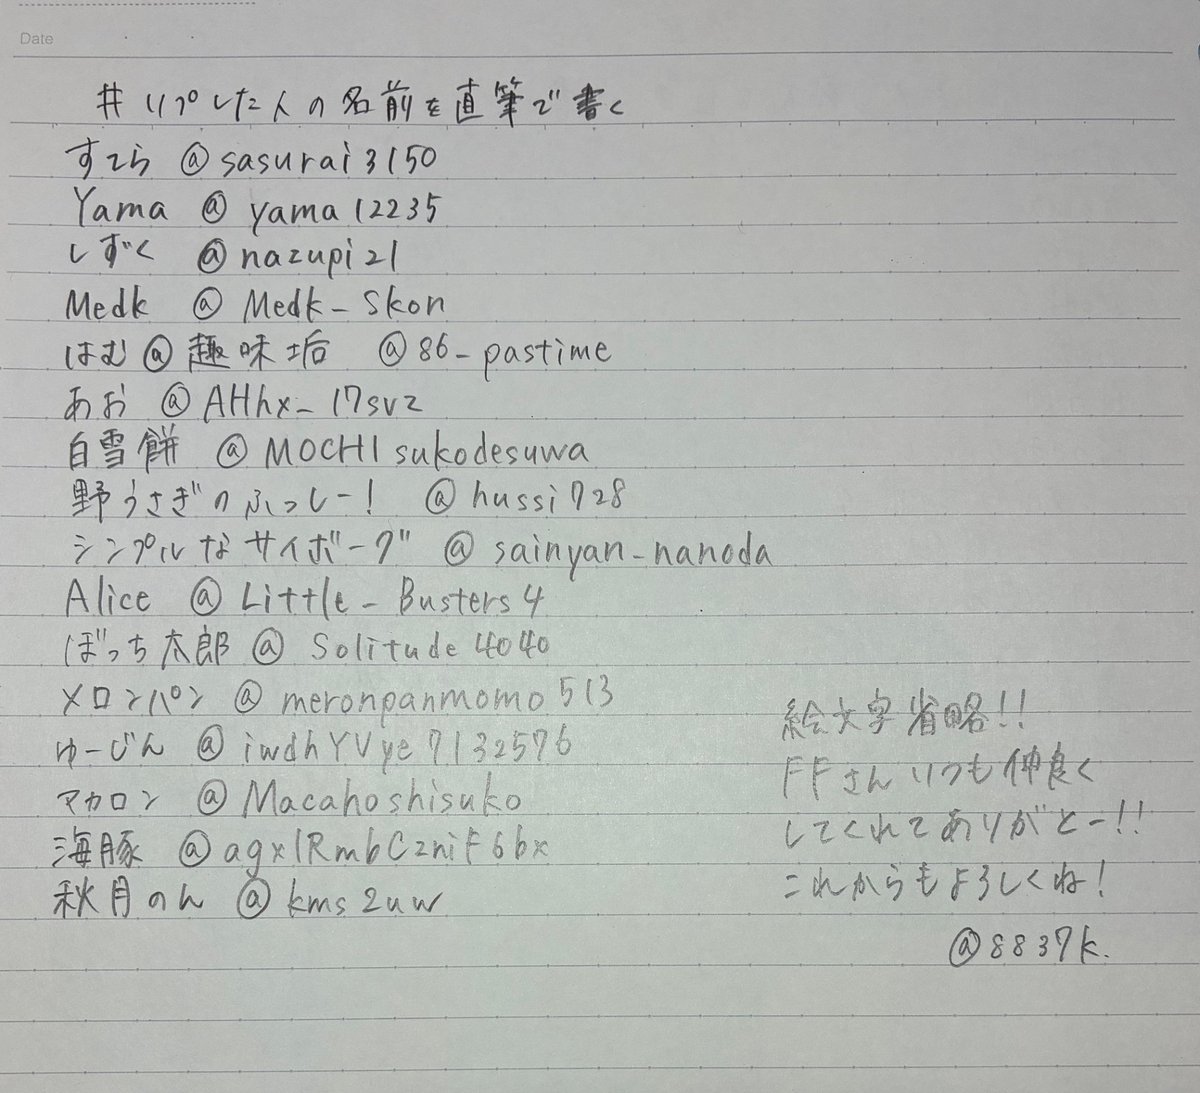 Date
#リプした人の名前を直筆で書く
すてら @sasurai3150
Yama @yama12235
しずく @nazupi21
Medk @Medk_Skon
はむ@趣味垢 @86_pastime
あお @AHhx_17svz
白雪餅 @MOCHIsukodesuwa
野うさぎのふっしー! @hussi728
シンプルなサイボーグ @sainyan_nanoda
Alice @Little_Busters4
ぼっち太郎 @Solitude4040
メロンパン @meronpanmomo513
ゆーじん @iwdhYVye7132576
マカロン @Macahoshisuko
海豚 @agxlRmbCzniF6bx
秋月のん @kms2uw
絵文字省略!!
FFさんいつも仲良く
してくれてありがとー!!
これからもよろしくね!
@8837k.